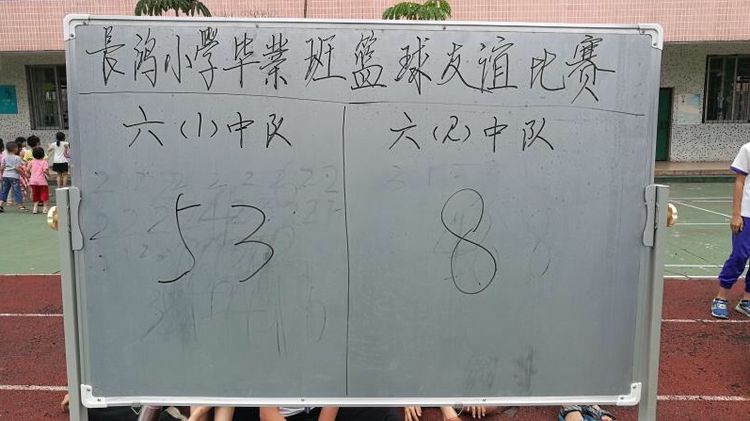 長鸿小学毕業班篮球友谊比赛
六(1)中队
六(2)中队
53
8